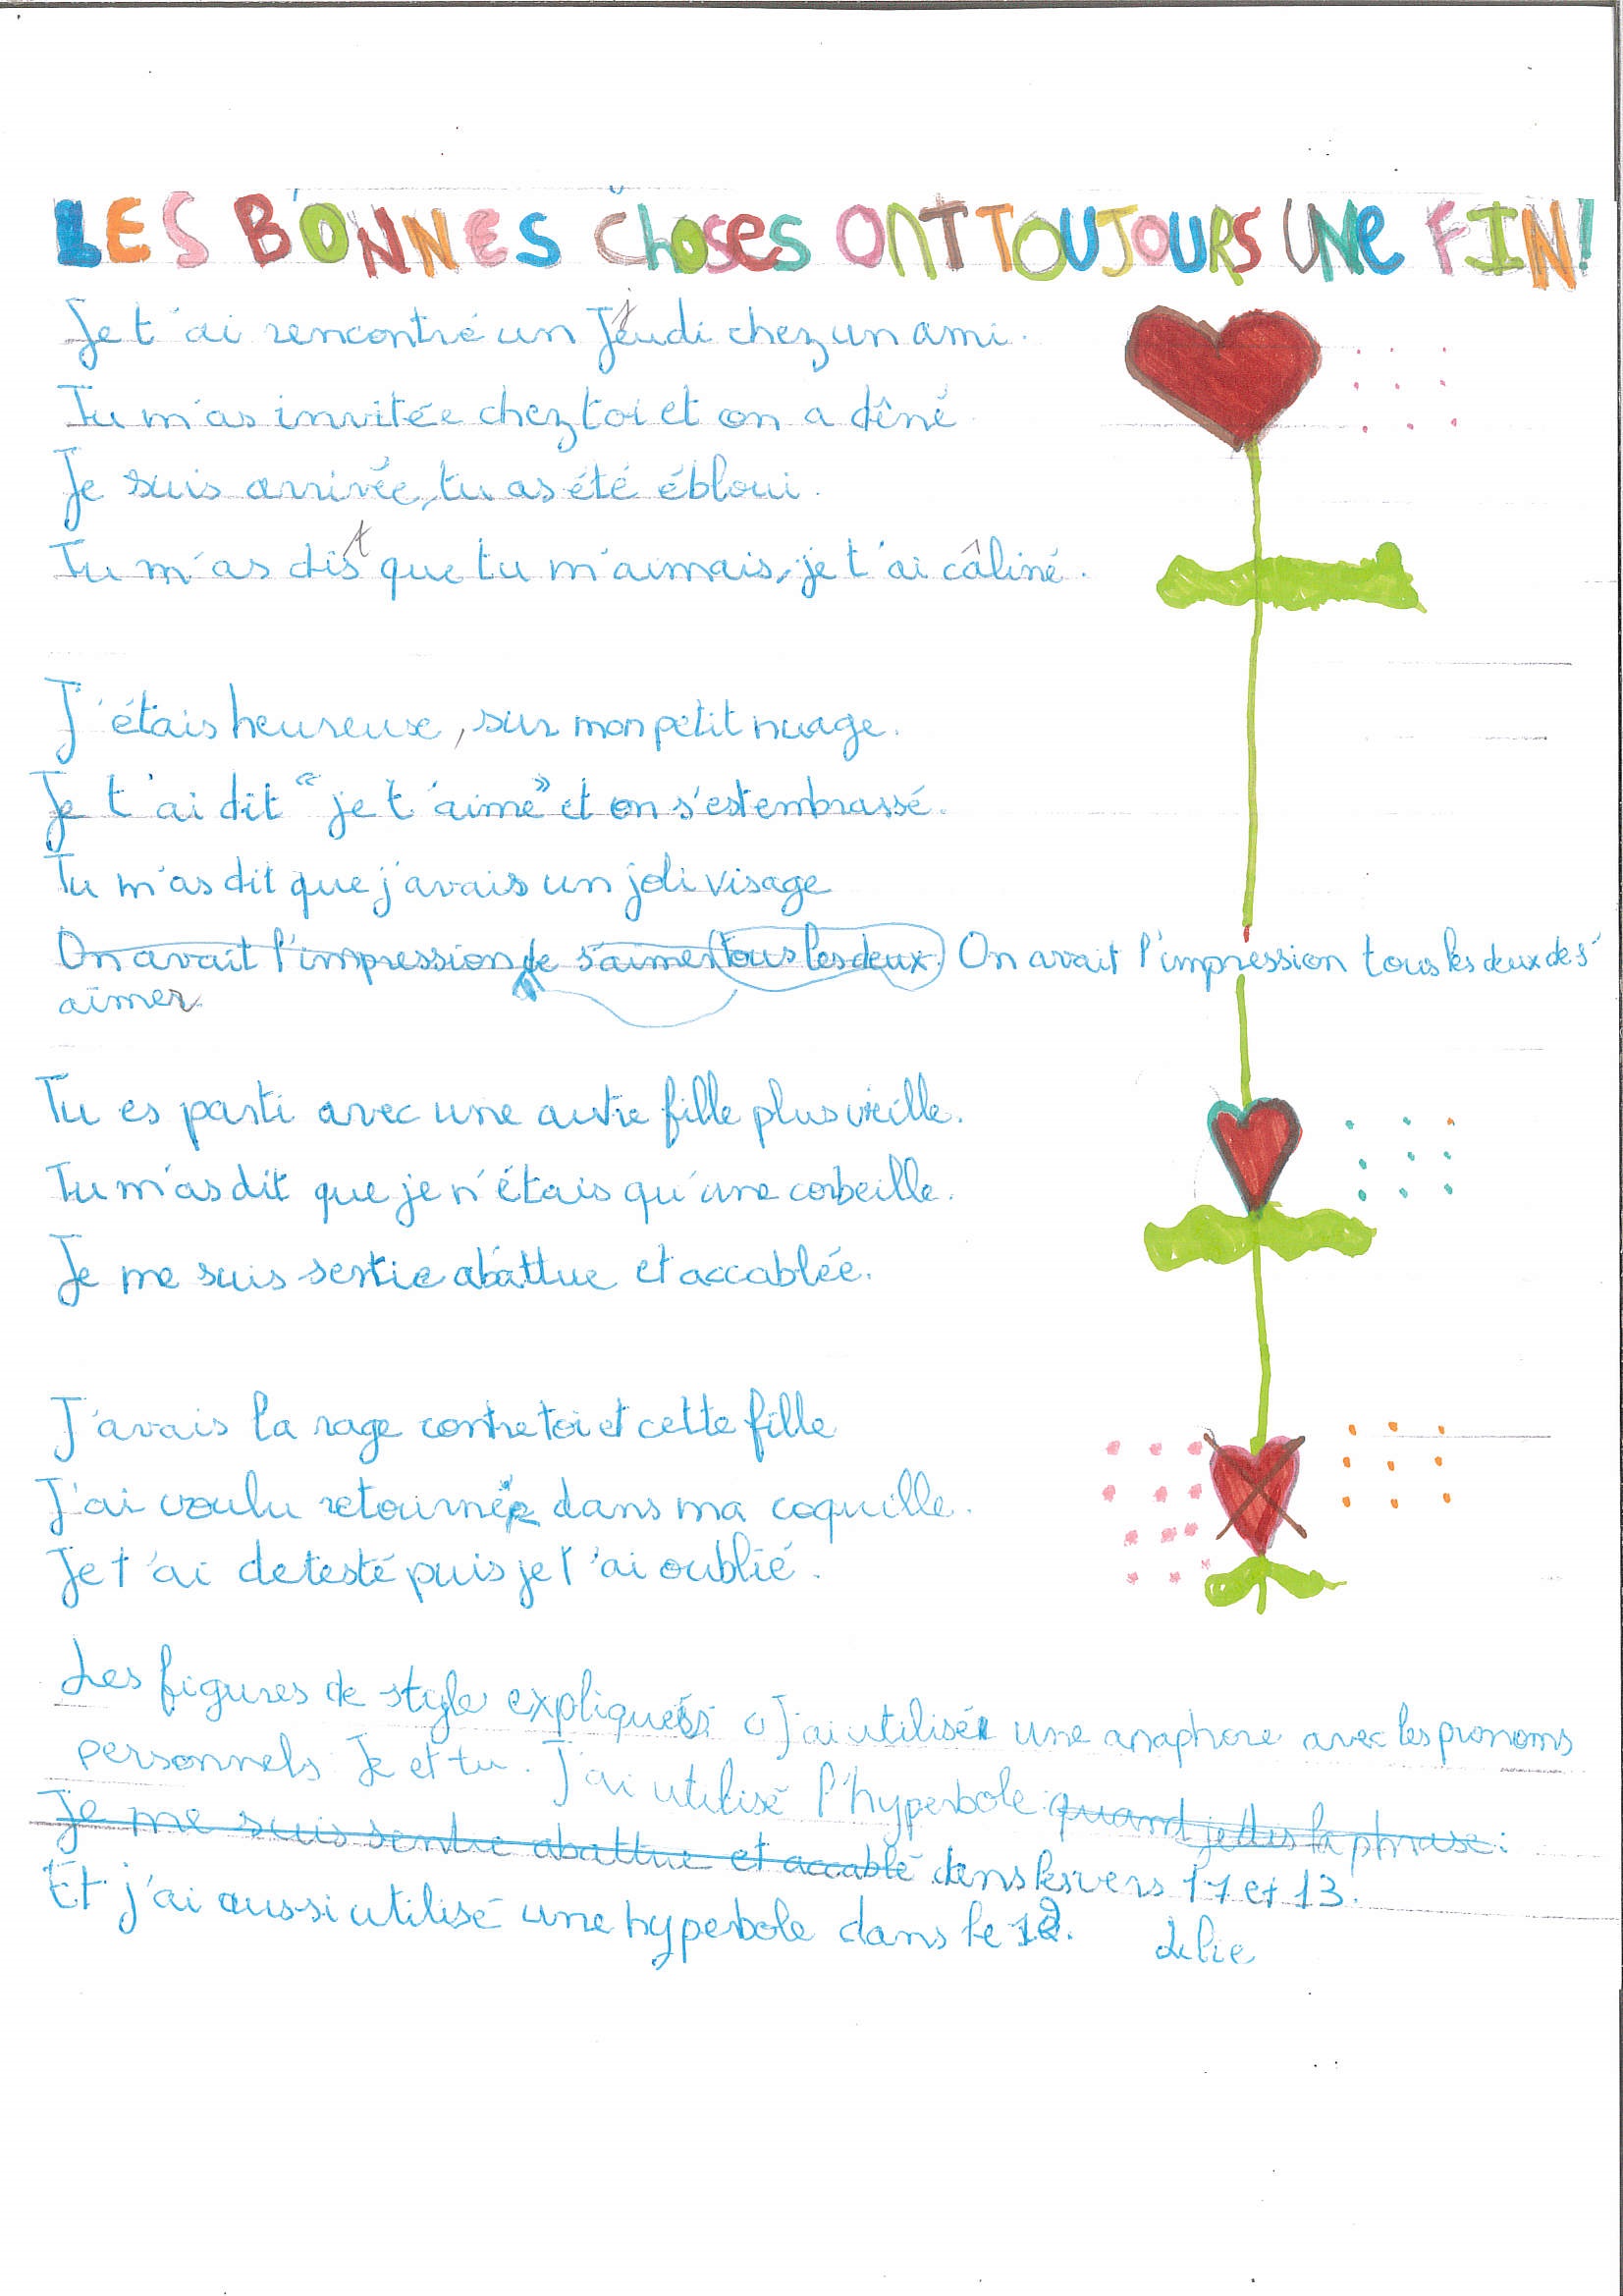 LES BONNES ChOSES ONT TOUJOURS UNE FIN!
Je t'ai rencontré un Jeudi chez un ami.
Tu m'as invitée chez toi et on a dîné
Je suis arrivée, tu as été ébloui.
Tu m'as dit que tu m'aimais, je t'ai câliné.
J'étais heureuse, sur mon petit nuage.
Je t'ai dit "je t'aime" et on s'est embrassé.
Tu m'as dit que j'avais un joli visage
On avait l'impression de s'aimer tous les deux. On avait l'impression tous les deux de s'
aimer
Tu es parti avec une autre fille plus vieille.
Tu m'as dit que je n'étais qu'une corbeille.
Je me suis sentie abattue et accablée.
J'avais la rage contre toi et cette fille
J'ai voulu retourner dans ma coquille.
Je t'ai detesté puis je t'ai oublié.
Les figures de style expliqués: J'ai utilisé une anaphore avec les pronoms
personnels Je et tu. J'ai utilisé l'hyperbole quand je dis la phrase:
Je me suis sentie abattue et accablé dans les vers 11 et 13.
Et j'ai aussi utilisé une hyperbole dans le 12. Lilie